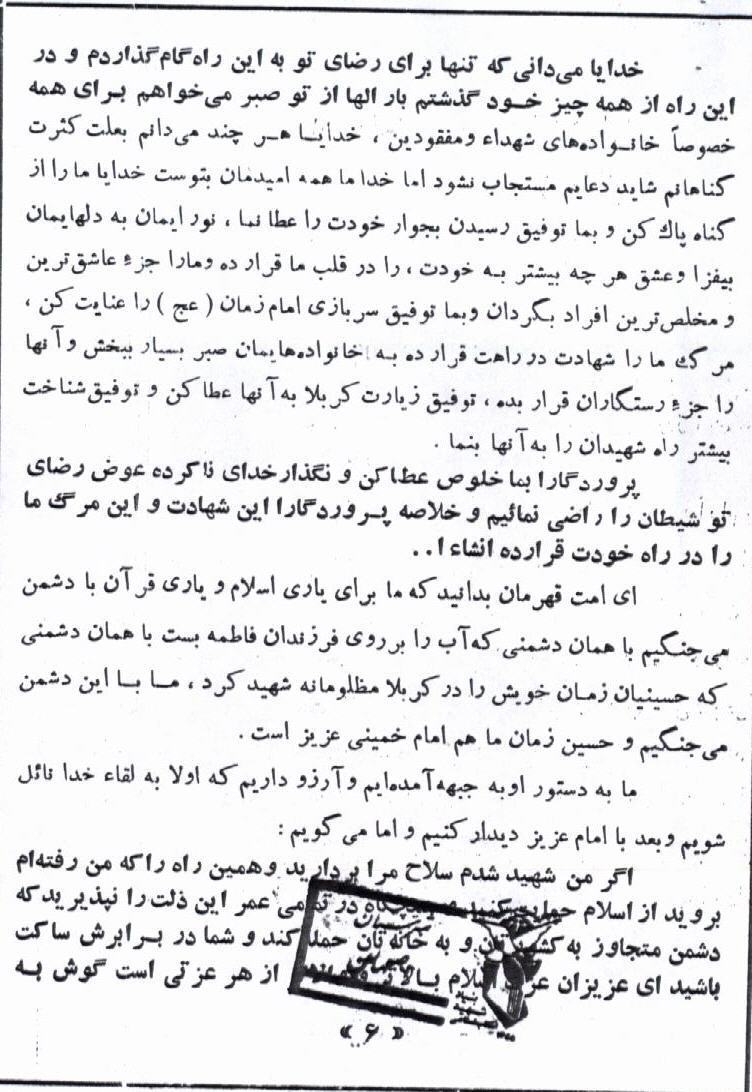 خدایا می‌دانی که تنها برای رضای تو به این راه گام گذاردم و در
این راه از همه چیز خود گذشتم بار الها از تو صبر می‌خواهم برای همه
خصوصاً خانواده‌های شهداء ومفقودین ، خدایا هر چند می‌دانم بعلت کثرت
گناهانم شاید دعایم مستجاب نشود اما خدا ما همه امیدمان بتوست خدایا ما را از
گناه پاك کن و بما توفیق رسیدن بجوار خودت را عطا نما ، نور ایمان به دلهایمان
بیفزا وعشق هر چه بیشتر به خودت ، را در قلب ما قرار ده ومارا جزءِ عاشق‌ترین
و مخلص‌ترین افراد بگردان وبما توفیق سربازی امام زمان ( عج ) را عنایت کن ،
مرگ ما را شهادت در راهت قرار ده به خانواده‌هایمان صبر بسیار ببخش و آنها
را جزءِ رستگاران قرار بده ، توفیق زیارت کربلا به آنها عطا کن و توفیق شناخت
بیشتر راه شهیدان را به آنها بنما .
پروردگارا بما خلوص عطا کن و نگذار خدای ناکرده عوض رضای
تو شیطان را راضی نمائیم و خلاصه پروردگارا این شهادت و این مرگ ما
را در راه خودت قرارده انشاءا..
ای امت قهرمان بدانید که ما برای یاری اسلام و یاری قرآن با دشمن
می‌جنگیم با همان دشمنی که آب را بر روی فرزندان فاطمه بست با همان دشمنی
که حسینیان زمان خویش را در کربلا مظلومانه شهید کرد ، ما با این دشمن
می‌جنگیم و حسین زمان ما هم امام خمینی عزیز است .
ما به دستور اوبه جبهه آمده‌ایم و آرزو داریم که اولا به لقاء خدا نائل
شویم وبعد با امام عزیز دیدار کنیم و اما می گویم :
اگر من شهید شدم سلاح مرا بردارید وهمین راه راکه من رفته‌ام
بروید از اسلام حمایت کنید در تمامی عمر این ذلت را نپذیرید که
دشمن متجاوز به کشورتان و به خانه تان حمله کند و شما در برابرش ساکت
باشید ای عزیزان عزت اسلام بالاتر از هر عزتی است گوش به
« ۶ »